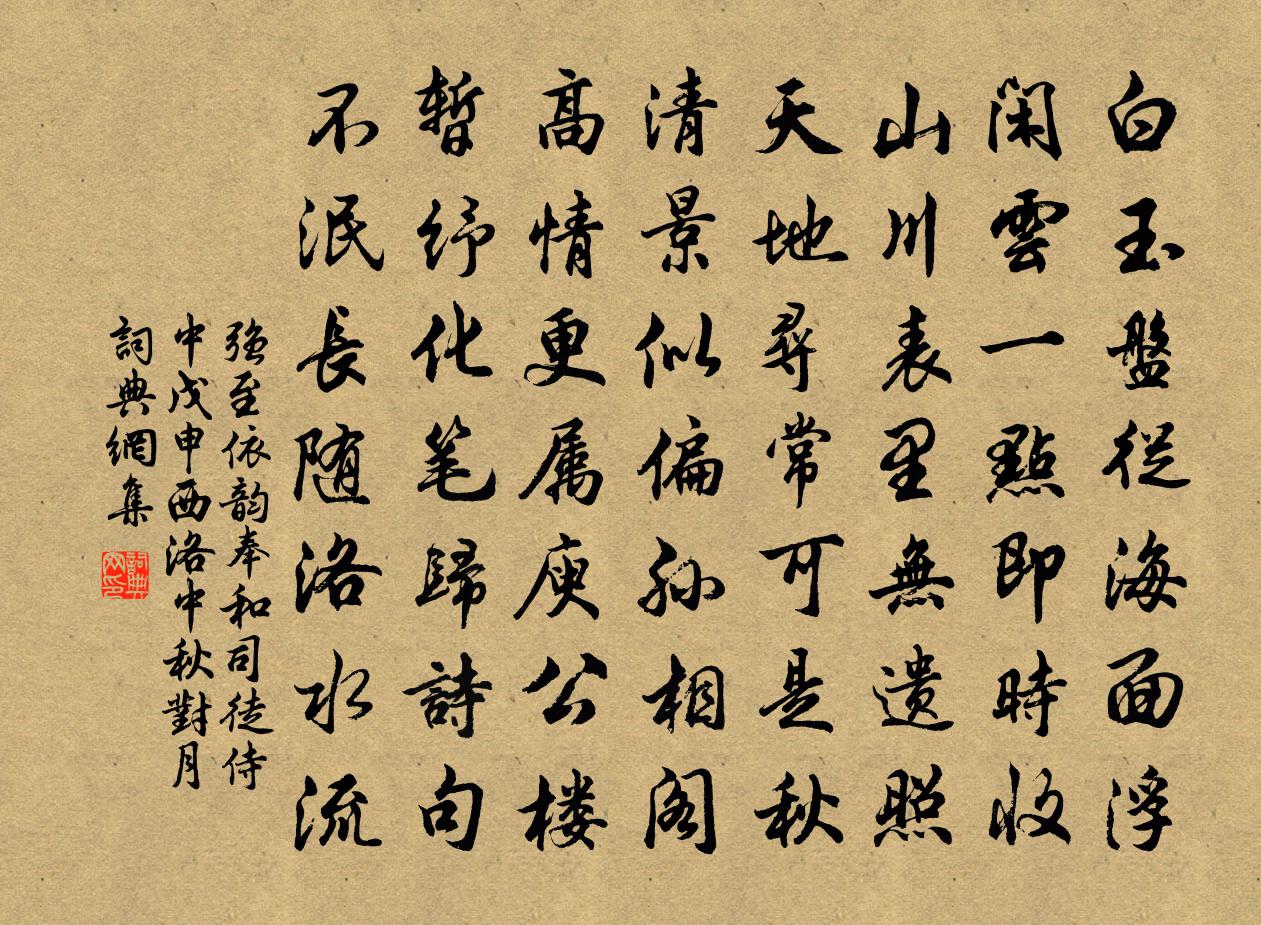 白玉盤從海面浮
閑雲一點即時收
山川表里無遺照
天地尋常可是秋
清景似偏孙相阁
高情更属庾公楼
暫纾化笔歸詩句
不泯長随洛水流
強至依韵奉和司徒侍
中戊申西洛中秋對月
詞典網集
詞典網印